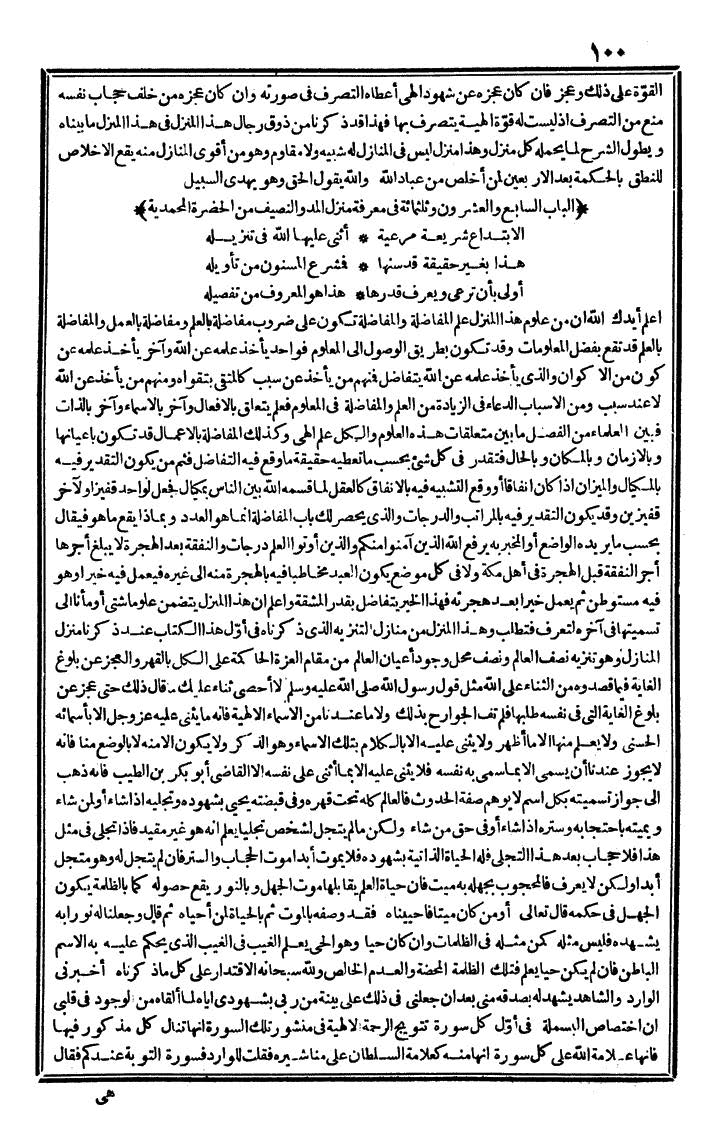 ١٠٠
القوة على ذلك وعجز فان كان عجزه عن شهود الهى أعطاه التصرف فى صورته وان كان عجزه من خلف حجاب نفسه
منع من التصرف اذ ليست له قوة الهية يتصرف بها فهذا قد ذكرنا من ذوق رجال هذا المنزل فى هذا المنزل ما بيناه
ويطول الشرح لما يحمله كل منزل وهذا منزل ليس فى المنازل له شبيه ولا مقاوم وهو من أقوى المنازل منه يقع الاخلاص
للنطق بالحكمة بعد الاربعين لمن أخلص من عباد الله والله يقول الحق وهو يهدى السبيل
﴿الباب السابع والعشرون وثلثمائة فى معرفة منزل المد والنصيف من الحضرة المحمدية﴾
الابتداع شريعة مرعية * أثنى عليها الله فى تنزيله
هذا بغير حقيقة قد سنها * فشرع المسنون من تأويله
أولى بأن ترعى ويعرف قدرها * هذا هو المعروف من تفصيله
اعلم أيدك الله ان من علوم هذا المنزل علم المفاضلة والمفاضلة تكون على ضروب مفاضلة بالعلم ومفاضلة بالعمل والمفاضلة
بالعلم قد تقع بفضل المعلومات وقد تكون بطريق الوصول الى المعلوم فواحد يأخذ علمه عن الله وآخر يأخذ علمه عن
كون من الاكوان والذى يأخذ علمه عن الله يتفاضل فنهم من يأخذ عن سبب كالمتقى بتقواه ومنهم من يأخذ عن الله
لا عند سبب ومن الاسباب الدعاء فى الزيادة من العلم والمفاضلة فى المعلوم فعلم يتعلق بالافعال وآخر بالاسماء وآخر بالذات
فبين العلماء من الفضل ما بين متعلقات هذه العلوم والكل علم الهى وكذلك المفاضلة بالاعمال قد تكون باعيانها
وبالازمان وبالمكان وبالحال فتقدر فى كل شئ بحسب ما تعطيه حقيقة ما وقع فيه التفاضل فثم من يكون التقدير فيه
بالمكيال والميزان اذا كان انفاقا أو وقع التشبيه فيه بالانفاق كالعقل لما قسمه الله بين الناس بمكيال فجعل لواحد قفيزا ولآخر
قفيزين وقد يكون التقدير فيه بالمراتب والدرجات والذى يحصر لك باب المفاضلة انما هو العدد وبماذا يقع ما هو فيقال
بحسب ما يريده الواضع أو المخبر به يرفع الله الذين آمنوا منكم والذين أوتوا العلم درجات والنفقة بعد الهجرة لا يبلغ أجرها
أجر النفقة قبل الهجرة فى أهل مكة ولا فى كل موضع يكون العبد مخاطبا فيه بالهجرة منه الى غيره فيعمل فيه خيرا وهو
فيه مستوطن ثم يعمل خيرا بعد هجرته فهذا الخبر يتفاضل بقدر المشقة واعلم ان هذا المنزل يتضمن علوما شتى أومأنا الى
تسميتها فى آخره لتعرف فتطلب وهذا المنزل من منازل التنزيه الذى ذكرناه فى أول هذا الكتاب عند ذكرنا منزل
المنازل وهو تنزيه نصف العالم ونصف محل وجود أعيان العالم من مقام العزة الحاكمة على الكل بالقهر والعجز عن بلوغ
الغاية فيما قصدوه من الثناء على الله مثل قول رسول الله صلى الله عليه وسلم لا أحصى ثناء عليك قال ذلك حتى عجز عن
بلوغ الغاية التى فى نفسه طلبها فلم تف الجوارح بذلك ولا ما عندنا من الاسماء الالهية فانه ما يثنى عليه عز وجل الا بأسمائه
الحسنى ولا يعلم منها الا ما أظهر ولا يثنى عليه الا بالكلام بتلك الاسماء وهو الذكر ولا يكون الا منه لا بالوضع منا فانه
لا يجوز عندنا أن يسمى الا بما سمى به نفسه فلا يثنى عليه الا بما أثنى على نفسه الا القاضى أبو بكر بن الطيب فانه ذهب
الى جواز تسميته بكل اسم لا يوهم صفة الحدوث فالعالم كله تحت قهره وفى قبضته يحيى بشهوده وتجليه اذا شاء أو لمن شاء
ويميته باحتجابه وستره اذا شاء أو فى حق من شاء ولكن مالم يتجل لشخص تجليا يعلم انه هو غير مقيد فاذا تجلى فى مثل
هذا فلا حجاب بعد هذا التجلى فله الحياة الذاتية بشهوده فلا يموت أبدا موت الحجاب والستر فان لم يتجل له وهو متجل
أبدا ولكن لا يعرف فالمحجوب بجهله به ميت فان حياة العلم يقابلها موت الجهل وبالنور يقع حصوله كما بالظلمة يكون
الجهل فى حكمه قال تعالى أومن كان ميتا فاحييناه فقد وصفه بالموت ثم بالحياة لمن أحياه ثم قال وجعلنا له نورا به
يشهده فليس مثله كمن مثله فى الظلمات وان كان حيا وهو الحى بعلم الغيب فى الغيب الذى يحكم عليه به الاسم
الباطن فان لم يكن حيا بعلم فتلك الظلمة المحضة والعدم الخالص ولله سبحانه الاقتدار على كل ما ذكرناه أخبرنى
الوارد والشاهد يشهد له بصدقه منى بعد ان جعلنى فى ذلك على بينة من ربى بشهودى اياه لما ألقاه من الوجود فى قلبى
ان اختصاص البسملة فى أول كل سورة تتويج الرحمة الالهية فى منشور تلك السورة انها تنال كل مذكور فيها
فانها علامة الله على كل سورة انها منه كعلامة السلطان على مناشيره فقلت للوارد فسورة التوبة عندكم فقال
هى